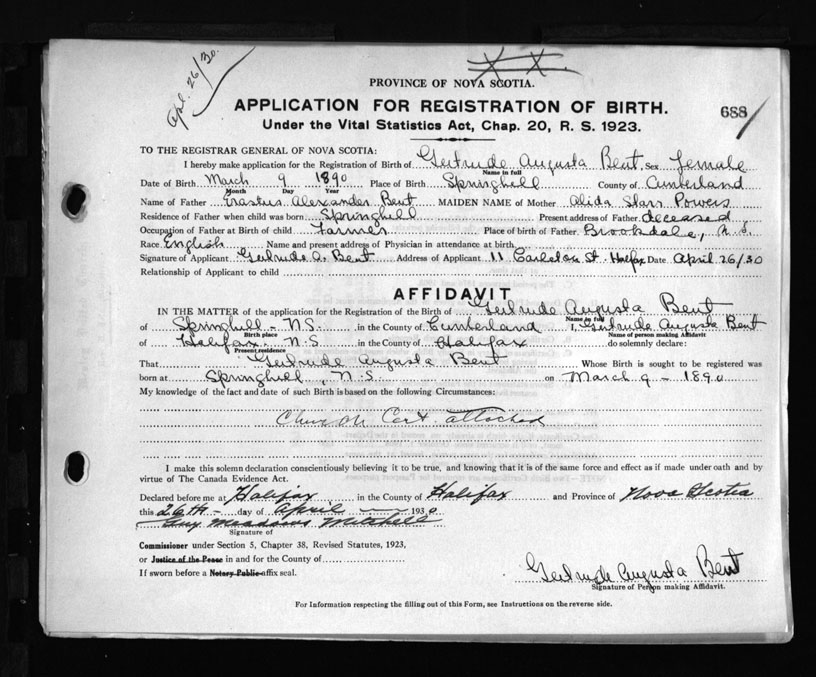 Apl. 26/30.
PROVINCE OF NOVA SCOTIA.
APPLICATION FOR REGISTRATION OF BIRTH. 688
Under the Vital Statistics Act, Chap. 20, R. S. 1923.
TO THE REGISTRAR GENERAL OF NOVA SCOTIA:
I hereby make application for the Registration of Birth of Gertrude Augusta Bent, Sex Female
Name in full
Date of Birth March 9 1890 Place of Birth Springhill County of Cumberland
Month Day Year
Name of Father Erastus Alexander Bent MAIDEN NAME of Mother Alida Starr Powers
Residence of Father when child was born Springhill Present address of Father deceased
Occupation of Father at Birth of child Farmer Place of birth of Father Brookdale, N.S.
Race English Name and present address of Physician in attendance at birth
Signature of Applicant Gertrude A. Bent Address of Applicant 11 Carleton St. Halifax Date April 26/30
Relationship of Applicant to child
AFFIDAVIT
IN THE MATTER of the application for the Registration of the Birth of Gertrude Augusta Bent
Name in full
of Springhill - N.S. in the County of Cumberland I, Gertrude Augusta Bent
Birth place Name of person making Affidavit
of Halifax, N.S. in the County of Halifax do solemnly declare:
Present residence
That Gertrude Augusta Bent Whose Birth is sought to be registered was
born at Springhill, N.S. on March 9 - 1890
My knowledge of the fact and date of such Birth is based on the following Circumstances:
Church Cert. attached
I make this solemn declaration conscientiously believing it to be true, and knowing that it is of the same force and effect as if made under oath and by
virtue of The Canada Evidence Act.
Declared before me at Halifax in the County of Halifax and Province of Nova Scotia
this 26th - day of April 1930
Guy Meadows Mitchell
Signature of
Commissioner under Section 5, Chapter 38, Revised Statutes, 1923,
or Justice of the Peace in and for the County of
If sworn before a Notary Public affix seal.
Gertrude Augusta Bent
Signature of Person making Affidavit.
For Information respecting the filling out of this Form, see Instructions on the reverse side.